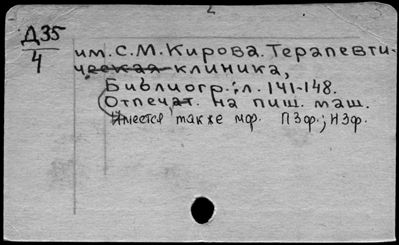 2
Д35
4
им. С.М. Кирова. Терапевти-
ческая клиника,
Библиогр.: л. 141-148.
Отпечат. на пиш. маш.
Имеется также мф. ПЗф.; НЗф.